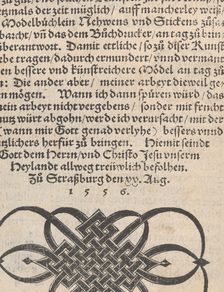 zeit möglich / auff mancherley
Modelbüchlin Nehwens vnd Stickens zů
bracht / vñ das dem Bůchdrucker / an tag zů brin
überantwort. Damit ettliche / so zů diser Kunst
be tragen / dadurch ermundert / vnnd verman
en bessere vnd künstreichere Mödel an tag zů
Die ander aber / meiner arbeyt dieweil
en mögen. Wann ich dann spüren würd / das
ein arbeyt nicht vergebens / sonder mit frucht
nutz würt abgohn / werd ich verursacht / mit der
(wann mir Gott genad verlyhe) bessers vnnd
tzlichers herfür zů bringen. Hiemit seindt
Gott dem Herrn / vnd Christo Jesu vnserm
Heylandt allweg treüwlich befolhen.
Zů Straßburg den xx. Aug.
5 5 6.